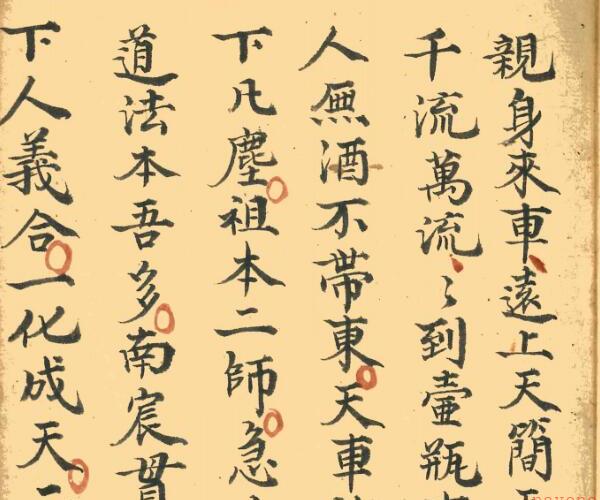 親身來車遠上天簡
千流萬流〻到壷瓶
人無酒不帶東天車
下凡塵祖本二師急
道法本吾多南宸貫
下人義合一化成天